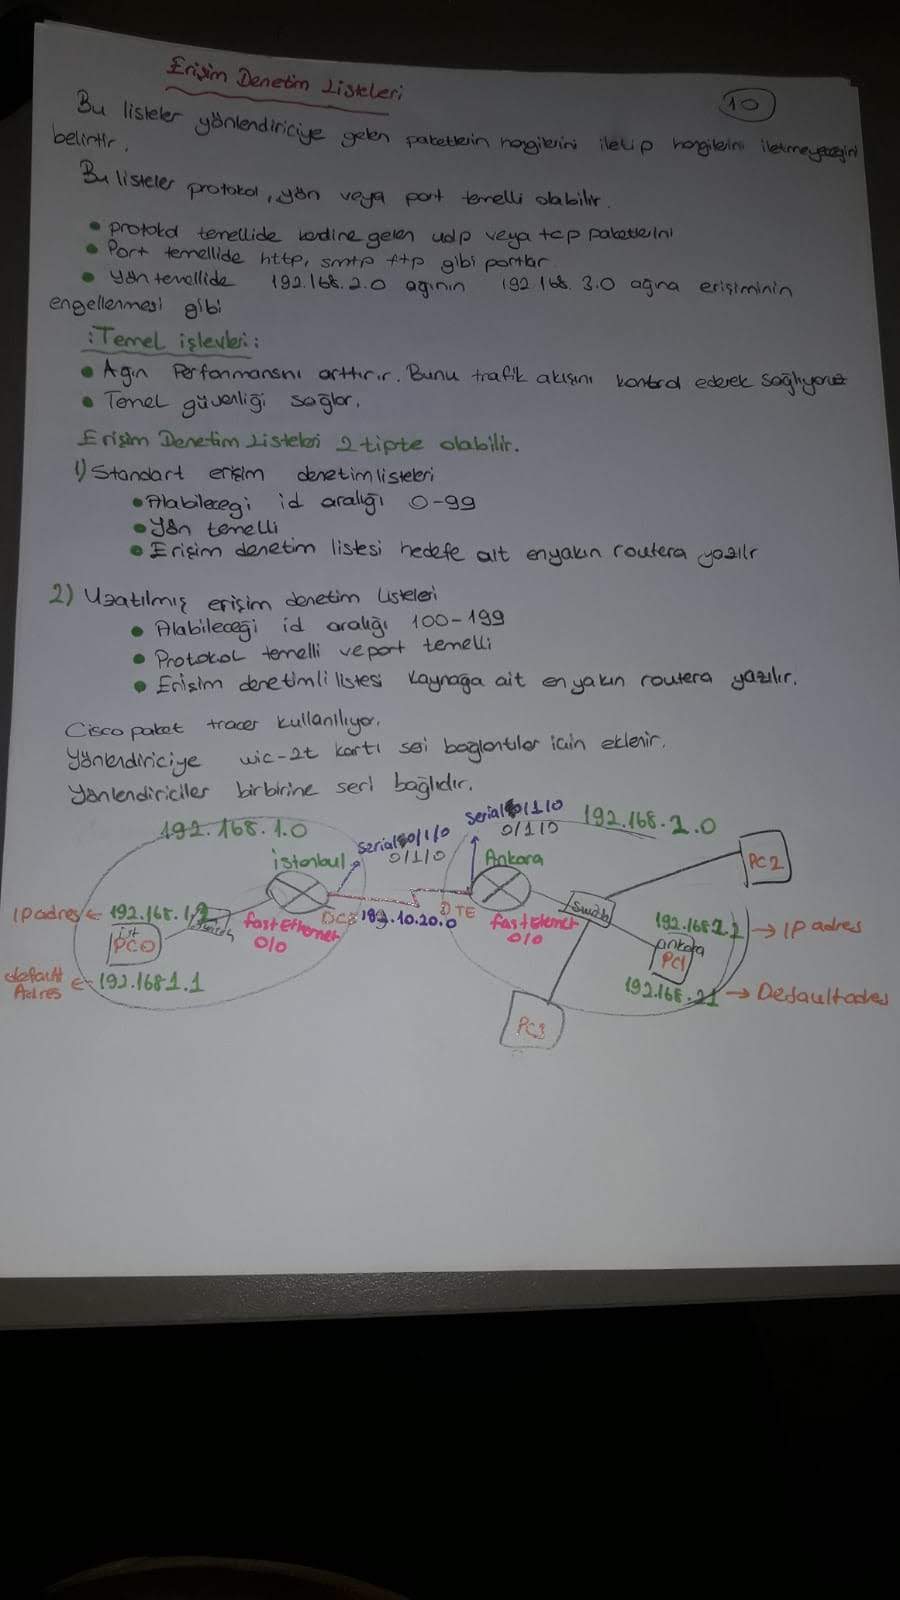 Erişim Denetim Listeleri
10
Bu listeler yönlendiriciye gelen paketlerin hangilerini iletip hangilerini iletmeyeceğini
belirtir.
Bu listeler protokol, yön veya port temelli olabilir.
• protokol temellide kendine gelen udp veya tcp paketlerini
• Port temellide http, smtp ftp gibi portlar
• Yön temellide 192.168.2.0 ağının 192.168.3.0 ağına erişiminin
engellenmesi gibi
:Temel işlevleri:
• Ağın Performansını arttırır. Bunu trafik akışını kontrol ederek sağlıyoruz
• Temel güvenliği sağlar.
Erişim Denetim Listeleri 2 tipte olabilir.
1) Standart erişim denetim listeleri
• Alabileceği id aralığı 0-99
• Yön temelli
• Erişim denetim listesi hedefe ait en yakın routera yazılır
2) Uzatılmış erişim denetim Listeleri
• Alabileceği id aralığı 100-199
• Protokol temelli ve port temelli
• Erişim denetimli listesi kaynağa ait en yakın routera yazılır.
Cisco paket tracer kullanılıyor.
Yönlendiriciye wic-2t kartı seri bağlantılar icin eklenir.
Yönlendiriciler birbirine seri bağlıdır.
192.168.1.0
serial 0/1/0
0/1/0
serial 0/1/0
0/1/0
192.168.2.0
istanbul
Ankara
PC2
IP adres ← 192.168.1.2
switch
fast Ethernet
0/0
DCE
10.20.0
DTE
fast Ethernet
0/0
switch
192.168.2.2 → IP adres
ist
PC0
ankara
PC1
default
Adres ← 192.168.1.1
192.168.21 → Default adres
PC3